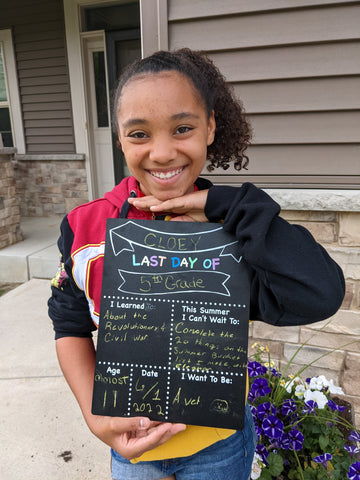 CLOEY
LAST DAY OF
5th Grade
I Learned To:
About the
Revolutionary &
Civil War
This Summer
I Can't Wait To:
Complete the
20 things on the
Summer Bucket
list I made with
Age
almost
11
Date
6/1
2022
I Want To Be:
A vet